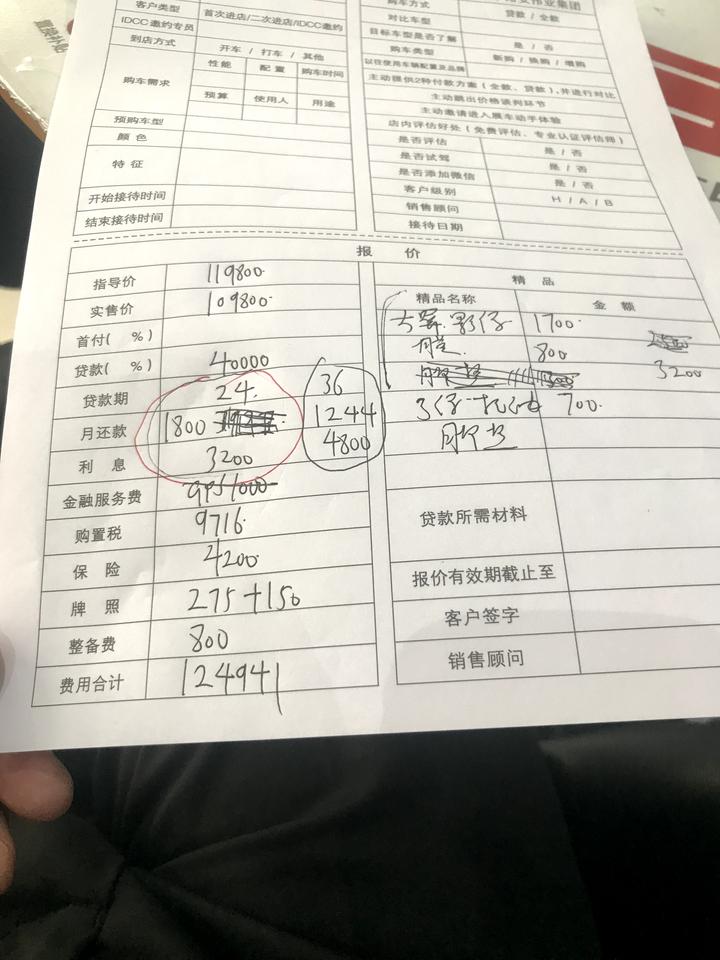 客户类型 首次进店/二次进店/IDCC邀约
IDCC邀约专员
到店方式 开车 / 打车 / 其他
购车需求 性能 配置 购车时间
预算 使用人 用途
预购车型
颜色
特征
开始接待时间
结束接待时间
购车方式 贷款 / 全款
对比车型
目标车型是否了解 是 / 否
购车类型 新购 / 换购 / 增购
以往使用车辆配置及品牌
主动提供2种付款方案(全款、贷款),并进行对比
主动跳出价格谈判环节
主动邀请进入展车动手体验
店内评估好处(免费评估、专业认证评估师)
是否评估 是 / 否
是否试驾 是 / 否
是否添加微信 是 / 否
客户级别 H / A / B
销售顾问
接待日期
报 价
指导价 119800
实售价 109800
首付( %)
贷款( %) 40000
贷款期 24 36
月还款 1800 1244
利息 3200 4800
金融服务费
购置税 9716
保险 4200
牌照 275+150
整备费 800
费用合计 124941
精品
精品名称 金额
1700
800
3200
700
贷款所需材料
报价有效期截止至
客户签字
销售顾问